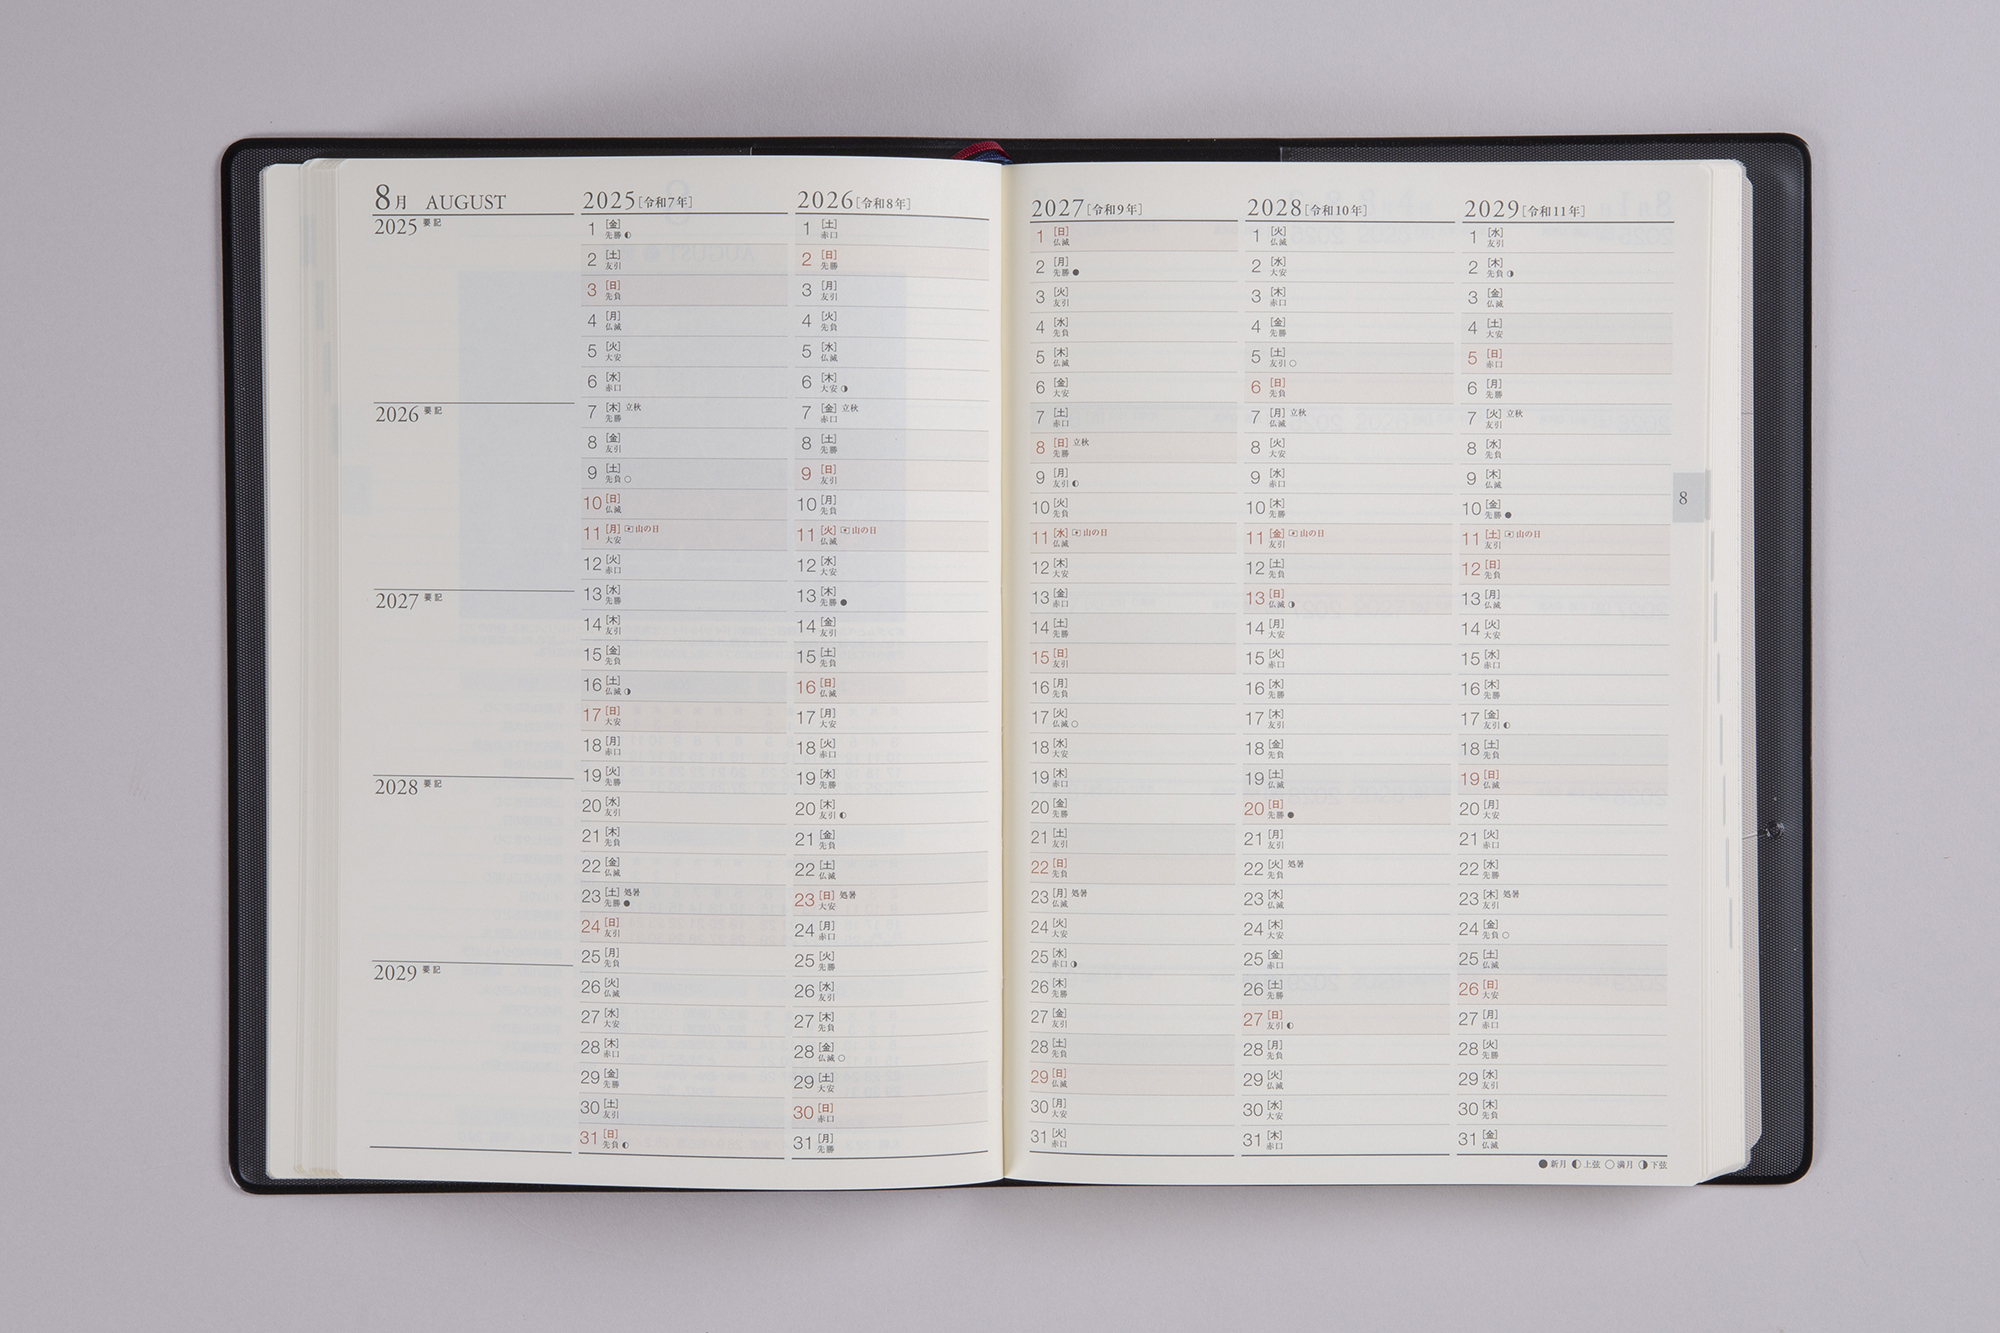 8月 AUGUST
2025 要記
2026 要記
2027 要記
2028 要記
2029 要記
2025[令和7年]
1 [金] 先勝 ◐
2 [土] 友引
3 [日] 先負
4 [月] 仏滅
5 [火] 大安
6 [水] 赤口
7 [木] 立秋 先勝
8 [金] 友引
9 [土] 先負 ○
10 [日] 仏滅
11 [月] 山の日 大安
12 [火] 赤口
13 [水] 先勝
14 [木] 友引
15 [金] 先負
16 [土] 仏滅 ◑
17 [日] 大安
18 [月] 赤口
19 [火] 先勝
20 [水] 友引
21 [木] 先負
22 [金] 仏滅
23 [土] 処暑 先勝 ●
24 [日] 友引
25 [月] 先負
26 [火] 仏滅
27 [水] 大安
28 [木] 赤口
29 [金] 先勝
30 [土] 友引
31 [日] 先負 ◐
2026[令和8年]
1 [土] 赤口
2 [日] 先勝
3 [月] 友引
4 [火] 先負
5 [水] 仏滅
6 [木] 大安 ◑
7 [金] 立秋 赤口
8 [土] 先勝
9 [日] 友引
10 [月] 先負
11 [火] 山の日 仏滅
12 [水] 大安
13 [木] 先勝 ●
14 [金] 友引
15 [土] 先負
16 [日] 仏滅
17 [月] 大安
18 [火] 赤口
19 [水] 先勝
20 [木] 友引 ◐
21 [金] 先負
22 [土] 仏滅
23 [日] 処暑 大安
24 [月] 赤口
25 [火] 先勝
26 [水] 友引
27 [木] 先負
28 [金] 仏滅 ○
29 [土] 大安
30 [日] 赤口
31 [月] 先勝
2027[令和9年]
1 [日] 仏滅
2 [月] 先勝 ●
3 [火] 友引
4 [水] 先負
5 [木] 仏滅
6 [金] 大安
7 [土] 赤口
8 [日] 立秋 先勝
9 [月] 友引 ◐
10 [火] 先負
11 [水] 山の日 仏滅
12 [木] 大安
13 [金] 赤口
14 [土] 先勝
15 [日] 友引
16 [月] 先負
17 [火] 仏滅 ○
18 [水] 大安
19 [木] 赤口
20 [金] 先勝
21 [土] 友引
22 [日] 先負
23 [月] 処暑 仏滅
24 [火] 大安
25 [水] 赤口 ◑
26 [木] 先勝
27 [金] 友引
28 [土] 先負
29 [日] 仏滅
30 [月] 大安
31 [火] 赤口
2028[令和10年]
1 [火] 仏滅
2 [水] 大安
3 [木] 赤口
4 [金] 先勝
5 [土] 友引 ○
6 [日] 先負
7 [月] 立秋 仏滅
8 [火] 大安
9 [水] 赤口
10 [木] 先勝
11 [金] 山の日 友引
12 [土] 先負
13 [日] 仏滅 ◑
14 [月] 大安
15 [火] 赤口
16 [水] 先勝
17 [木] 友引
18 [金] 先負
19 [土] 仏滅
20 [日] 先勝 ●
21 [月] 友引
22 [火] 処暑 先負
23 [水] 仏滅
24 [木] 大安
25 [金] 赤口
26 [土] 先勝
27 [日] 友引 ◐
28 [月] 先負
29 [火] 仏滅
30 [水] 大安
31 [木] 赤口
2029[令和11年]
1 [水] 友引
2 [木] 先負 ◑
3 [金] 仏滅
4 [土] 大安
5 [日] 赤口
6 [月] 先勝
7 [火] 立秋 友引
8 [水] 先負
9 [木] 仏滅
10 [金] 先勝 ●
11 [土] 山の日 友引
12 [日] 先負
13 [月] 仏滅
14 [火] 大安
15 [水] 赤口
16 [木] 先勝
17 [金] 友引 ◐
18 [土] 先負
19 [日] 仏滅
20 [月] 大安
21 [火] 赤口
22 [水] 先勝
23 [木] 処暑 友引
24 [金] 先負 ○
25 [土] 仏滅
26 [日] 大安
27 [月] 赤口
28 [火] 先勝
29 [水] 友引
30 [木] 先負
31 [金] 仏滅
●新月 ◐上弦 ○満月 ◑下弦
8